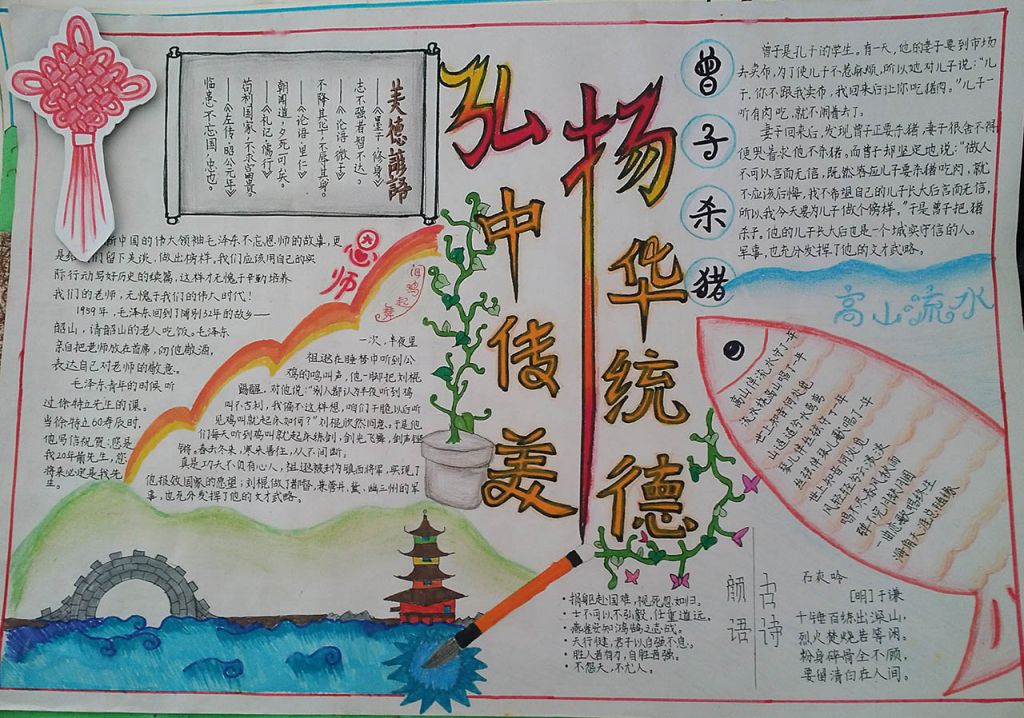 弘扬
中华
传统
美德
美德讠只谚
——《墨子·修身》
志不强者智不达。
——《论语·微子》
不降其志,不辱其身。
——《论语·里仁》
朝闻道,夕死可矣。
——《礼记·儒行》
苟利国家,不求富贵。
——《左传·昭公元年》
临患不忘国,忠也。
恩师
新中国的伟大领袖毛泽东不忘恩师的故事,更
是
们留下美谈,做出榜样,我们应该用自己的实
际行动写好历史的续篇,这样才无愧于辛勤培养
我们的老师,无愧于我们的伟人时代!
1959年,毛泽东回到了阔别32年的故乡——
韶山,请韶山的老人吃饭。毛泽东
亲自把老师放在首席,向他敬酒,
表达自己对老师的敬意。
毛泽东青年的时候听
过徐特立先生的课。
当徐特立60寿辰时,
他写信祝贺:您是
我20年前先生,您
将来必定是我先
生。
闻鸡起舞
一次,半夜里
祖逖在睡梦中听到公
鸡的鸣叫声,他一脚把刘琨
踢醒,对他说:“别人都认为半夜听到鸡
叫不吉利,我偏不这样想,咱们干脆以后听
见鸡叫就起床如何?”刘琨欣然同意。于是他
们每天听到鸡叫就起床练剑,剑光飞舞,剑声铿
锵。春去冬来,寒来暑往,从不间断。
真是功夫不负有心人,祖逖被封为镇西将军,实现了
他报效国家的愿望;刘琨做了都督,兼管并、蓟、幽三州的军
事,也充分发挥了他的文才武略。
曾子杀猪
曾子是孔子的学生。有一天,他的妻子要到市场
去卖布,为了使儿子不惹麻烦,所以她对儿子说:“儿
子,你不跟我卖布,我回来后让你吃猪肉。”儿子一
听有肉吃,就不闹着去了。
妻子回来后,发现曾子正要杀猪,妻子很舍不得
便哭着求他不杀猪。而曾子却坚定地说:“做人
不可以言而无信,既然答应儿子要杀猪吃肉,就
不应该后悔,我不希望自己的儿子长大后言而无信,
所以,我今天要为儿子做个榜样。”于是曾子把猪
杀了。他的儿子长大后也是一个城实守信的人。
军事,也充分发挥了他的文才武略。
高山流水
高山伴流水守了一年
流水绕高山唱了一年
世上知音何处觅
唱不尽春风秋雨
一曲恋歌唱终生
海角天涯总随缘
·捐躯赴国难,视死忽如归。
·士不可以不弘毅,任重道远。
·燕雀安知鸿鹄之志哉。
·天行健,君子以自强不息。
·胜人者有力,自胜者强。
·不怨天,不尤人。
古诗
石灰吟
[明]于谦
千锤百炼出深山,
烈火焚烧若等闲。
粉身碎骨全不顾,
要留清白在人间。